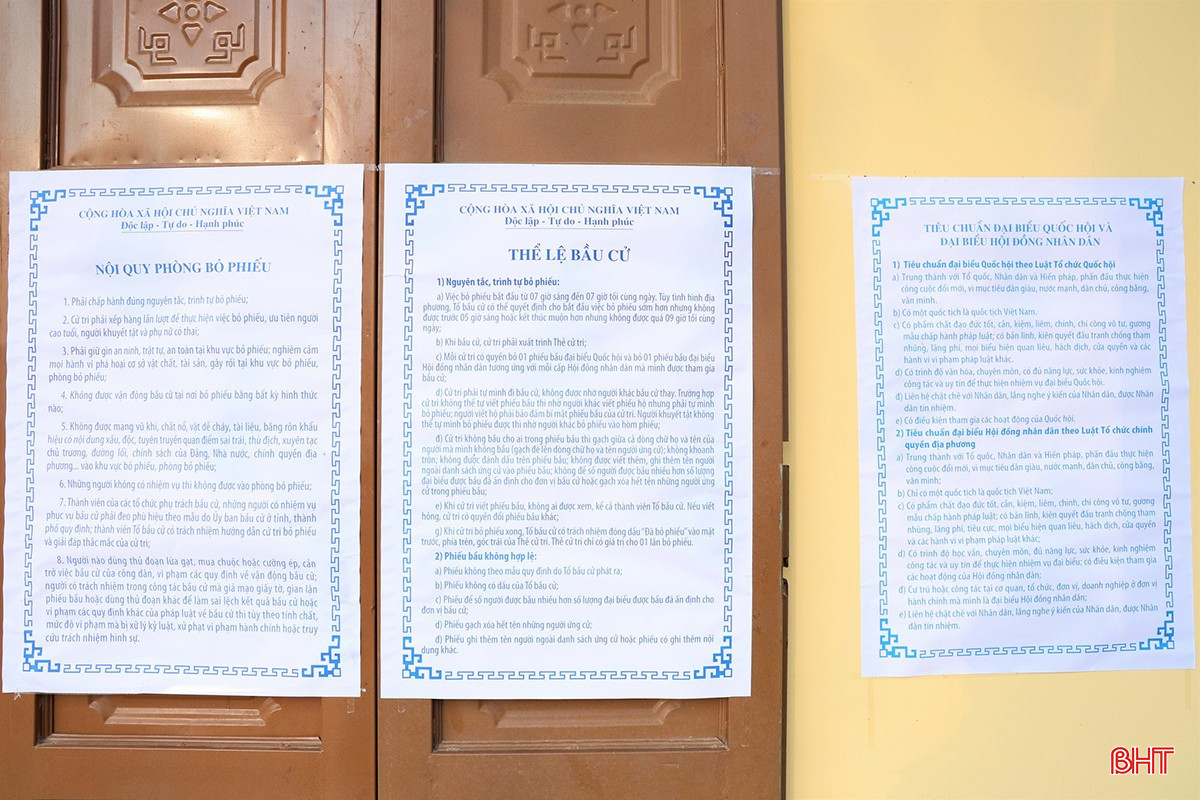 CỘNG HÒA XÃ HỘI CHỦ NGHĨA VIỆT NAM
Độc lập - Tự do - Hạnh phúc
NỘI QUY PHÒNG BỎ PHIẾU
1. Phải chấp hành đúng nguyên tắc, trình tự bỏ phiếu;
2. Cử tri phải xếp hàng lần lượt để thực hiện việc bỏ phiếu, ưu tiên người
cao tuổi, người khuyết tật và phụ nữ có thai;
3. Phải giữ gìn an ninh, trật tự, an toàn tại khu vực bỏ phiếu; nghiêm cấm
mọi hành vi phá hoại cơ sở vật chất, tài sản, gây rối tại khu vực bỏ phiếu,
phòng bỏ phiếu;
4. Không được vận động bầu cử tại nơi bỏ phiếu bằng bất kỳ hình thức
nào;
5. Không được mang vũ khí, chất nổ, vật dễ cháy, tài liệu, băng rôn khẩu
hiệu có nội dung xấu, độc, tuyên truyền quan điểm sai trái, thù địch, xuyên tạc
chủ trương, đường lối, chính sách của Đảng, Nhà nước, chính quyền địa
phương... vào khu vực bỏ phiếu, phòng bỏ phiếu;
6. Những người không có nhiệm vụ thì không được vào phòng bỏ phiếu;
7. Thành viên của các tổ chức phụ trách bầu cử, những người có nhiệm vụ
phục vụ bầu cử phải đeo phù hiệu theo mẫu do Ủy ban bầu cử ở tỉnh, thành
phố quy định; thành viên Tổ bầu cử có trách nhiệm hướng dẫn cử tri bỏ phiếu
và giải đáp thắc mắc của cử tri;
8. Người nào dùng thủ đoạn lừa gạt, mua chuộc hoặc cưỡng ép, cản
trở việc bầu cử của công dân, vi phạm các quy định về vận động bầu cử;
người có trách nhiệm trong công tác bầu cử mà giả mạo giấy tờ, gian lận
phiếu bầu hoặc dùng thủ đoạn khác để làm sai lệch kết quả bầu cử hoặc
vi phạm các quy định khác của pháp luật về bầu cử thì tùy theo tính chất,
mức độ vi phạm mà bị xử lý kỷ luật, xử phạt vi phạm hành chính hoặc truy
cứu trách nhiệm hình sự.
CỘNG HÒA XÃ HỘI CHỦ NGHĨA VIỆT NAM
Độc lập - Tự do - Hạnh phúc
THỂ LỆ BẦU CỬ
1) Nguyên tắc, trình tự bỏ phiếu:
a) Việc bỏ phiếu bắt đầu từ 07 giờ sáng đến 07 giờ tối cùng ngày. Tùy tình hình địa
phương, Tổ bầu cử có thể quyết định cho bắt đầu việc bỏ phiếu sớm hơn nhưng không
được trước 05 giờ sáng hoặc kết thúc muộn hơn nhưng không được quá 09 giờ tối cùng
ngày;
b) Khi bầu cử, cử tri phải xuất trình Thẻ cử tri;
c) Mỗi cử tri có quyền bỏ 01 phiếu bầu đại biểu Quốc hội và bỏ 01 phiếu bầu đại biểu
Hội đồng nhân dân tương ứng với mỗi cấp Hội đồng nhân dân mà mình được tham gia
bầu cử;
d) Cử tri phải tự mình đi bầu cử, không được nhờ người khác bầu cử thay. Trường hợp
cử tri không thể tự viết phiếu bầu thì nhờ người khác viết phiếu hộ nhưng phải tự mình
bỏ phiếu; người viết hộ phải bảo đảm bí mật phiếu bầu của cử tri. Người khuyết tật không
thể tự mình bỏ phiếu được thì nhờ người khác bỏ phiếu vào hòm phiếu;
đ) Cử tri không bầu cho ai trong phiếu bầu thì gạch giữa cả dòng chữ họ và tên của
người mà mình không bầu (gạch đè lên dòng chữ họ và tên người ứng cử); không khoanh
tròn; không được đánh dấu trên phiếu bầu; không được viết thêm, ghi thêm tên người
ngoài danh sách ứng cử vào phiếu bầu; không để số người được bầu nhiều hơn số lượng
đại biểu được bầu đã ấn định cho đơn vị bầu cử hoặc gạch xóa hết tên những người ứng
cử trong phiếu bầu;
e) Khi cử tri viết phiếu bầu, không ai được xem, kể cả thành viên Tổ bầu cử. Nếu viết
hỏng, cử tri có quyền đổi phiếu bầu khác;
g) Khi cử tri bỏ phiếu xong, Tổ bầu cử có trách nhiệm đóng dấu "Đã bỏ phiếu" vào mặt
trước, phía trên, góc trái của Thẻ cử tri. Thẻ cử tri chỉ có giá trị cho 01 lần bỏ phiếu.
2) Phiếu bầu không hợp lệ:
a) Phiếu không theo mẫu quy định do Tổ bầu cử phát ra;
b) Phiếu không có dấu của Tổ bầu cử;
c) Phiếu để số người được bầu nhiều hơn số lượng đại biểu được bầu đã ấn định cho
đơn vị bầu cử;
d) Phiếu gạch xóa hết tên những người ứng cử;
đ) Phiếu ghi thêm tên người ngoài danh sách ứng cử hoặc phiếu có ghi thêm nội
dung khác.
TIÊU CHUẨN ĐẠI BIỂU QUỐC HỘI VÀ
ĐẠI BIỂU HỘI ĐỒNG NHÂN DÂN
1) Tiêu chuẩn đại biểu Quốc hội theo Luật Tổ chức Quốc hội
a) Trung thành với Tổ quốc, Nhân dân và Hiến pháp, phấn đấu thực hiện
công cuộc đổi mới, vì mục tiêu dân giàu, nước mạnh, dân chủ, công bằng,
văn minh.
b) Có một quốc tịch là quốc tịch Việt Nam.
c) Có phẩm chất đạo đức tốt, cần, kiệm, liêm, chính, chí công vô tư, gương
mẫu chấp hành pháp luật; có bản lĩnh, kiên quyết đấu tranh chống tham
nhũng, lãng phí, mọi biểu hiện quan liêu, hách dịch, cửa quyền và các
hành vi vi phạm pháp luật khác.
d) Có trình độ văn hóa, chuyên môn, có đủ năng lực, sức khỏe, kinh nghiệm
công tác và uy tín để thực hiện nhiệm vụ đại biểu Quốc hội.
đ) Liên hệ chặt chẽ với Nhân dân, lắng nghe ý kiến của Nhân dân, được Nhân
dân tín nhiệm.
e) Có điều kiện tham gia các hoạt động của Quốc hội.
2) Tiêu chuẩn đại biểu Hội đồng nhân dân theo Luật Tổ chức chính
quyền địa phương
a) Trung thành với Tổ quốc, Nhân dân và Hiến pháp, phấn đấu thực hiện
công cuộc đổi mới, vì mục tiêu dân giàu, nước mạnh, dân chủ, công bằng,
văn minh;
b) Chỉ có một quốc tịch là quốc tịch Việt Nam;
c) Có phẩm chất đạo đức tốt, cần, kiệm, liêm, chính, chí công vô tư, gương
mẫu chấp hành pháp luật; có bản lĩnh, kiên quyết đấu tranh chống tham
nhũng, lãng phí, tiêu cực, mọi biểu hiện quan liêu, hách dịch, cửa quyền
và các hành vi vi phạm pháp luật khác;
d) Có trình độ học vấn, chuyên môn, đủ năng lực, sức khỏe, kinh nghiệm
công tác và uy tín để thực hiện nhiệm vụ đại biểu; có điều kiện tham gia
các hoạt động của Hội đồng nhân dân;
đ) Cư trú hoặc công tác tại cơ quan, tổ chức, đơn vị, doanh nghiệp ở đơn vị
hành chính mà mình là đại biểu Hội đồng nhân dân;
e) Liên hệ chặt chẽ với Nhân dân, lắng nghe ý kiến của Nhân dân, được Nhân
dân tín nhiệm.
BHT